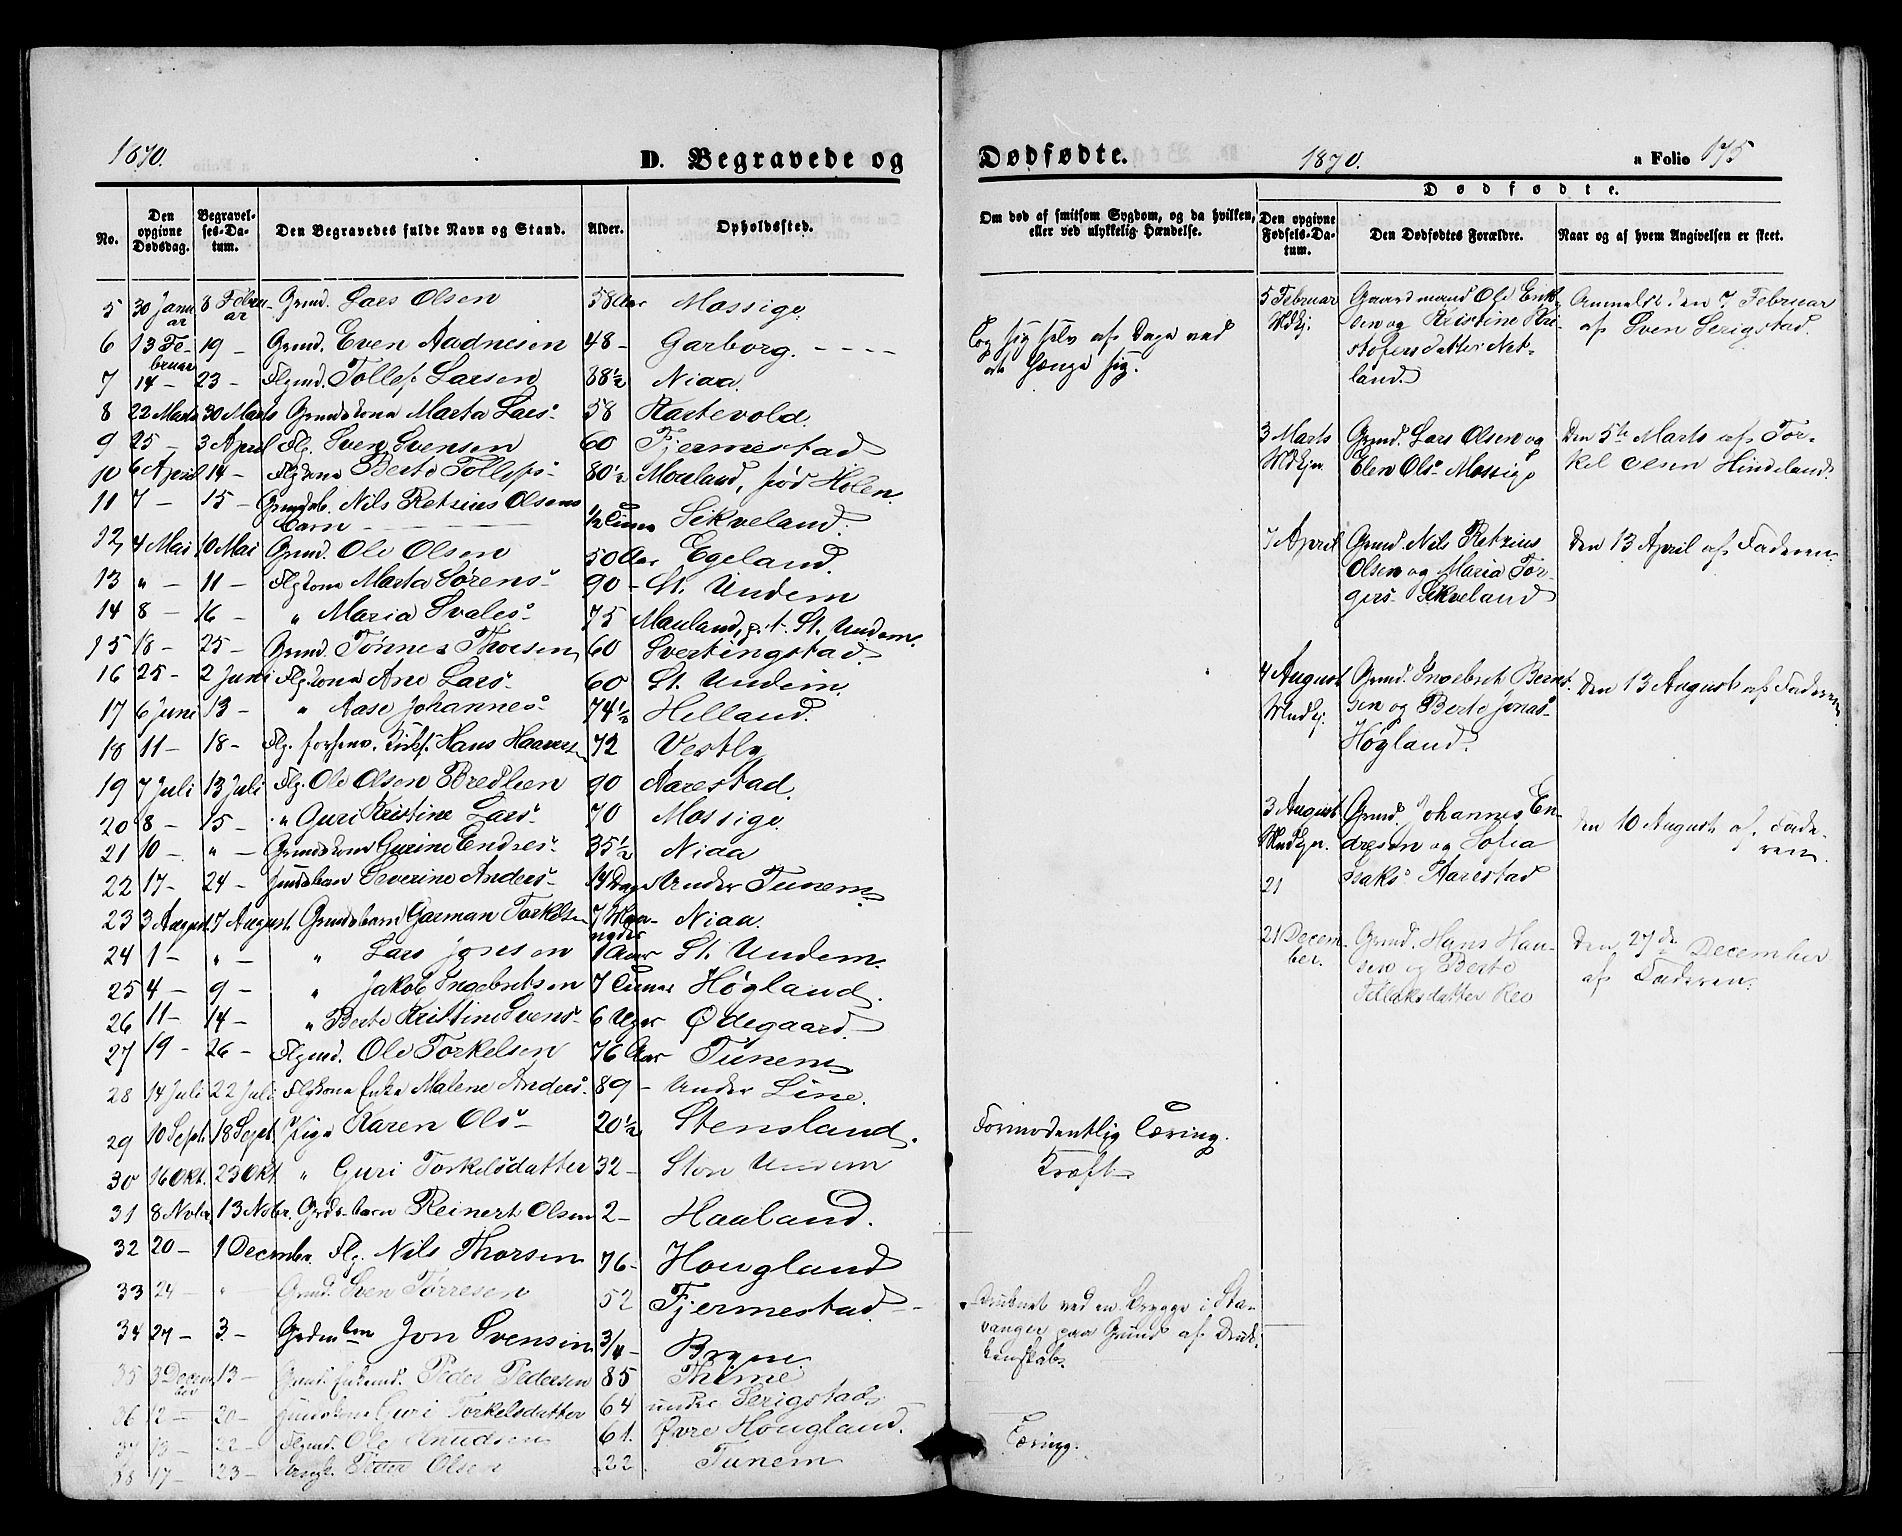 1870.
D. Begravede og
Dødfødte.
1870.
a Folio 175
No.
Den opgivne Dødsdag.
Begravelses-Datum.
Den Begravedes fulde Navn og Stand.
Alder.
Opholdssted.
Om død af smitsom Sygdom, og da hvilken, eller ved ulykkelig Hændelse.
Dødfødte.
Den opgivne Fødsels-Datum.
Den Dødfødtes Forældre.
Naar og af hvem Angivelsen er skeet.
5 30 Januar 8 Februar Grmd. Lars Olsen 58 Aar Mossige.
6 13 Februar 19 — Grmd. Even Aadnesen 48 — Garborg. Tog sig selv af Dage ved at hænge sig.
7 14 — 23 — Flgmd. Tollef Larsen 38½ Niaa.
8 22 Marts 30 Marts Grmdskona Marta Lars- 58 Kartevold.
9 25 — 3 April Flg. Sven Svensen 60 Fjermestad
10 6 April 14 — Flgkona Berte Tollefs- 80½ Mauland, fød Holen.
11 7 — 15 — Grmdsb. Nils Retzius Olsens Barn ½ Time Sikveland.
12 4 Mai 10 Mai Grmd. Ole Olsen 50 Aar Egeland.
13 " — 11 — Flgkona Marta Sørens- 90 — St. Undem
14 8 — 16 — " Maria Svales- 75 Mauland, p. t. St. Undem.
15 18 — 25 — Grmd. Tønnes Thorsen 60 Svertingstad.
16 25 — 2 Juni Flgkona Ane Lars- 60 St. Undem.
17 6 June 13 — " Aase Johannes- 74½ Helland.
18 11 — 18 — Flg. forhenv. Hans Haaversen 72 Vestly
19 7 Juli 13 Juli Flg. Ole Olsen Bredlien 90 Aarestad.
20 8 — 15 — " Guri Kristine Lars- 70 Mossige
21 10 — " — Grmdskona Gurine Endres- 35½ Niaa
22 17 — 24 — Huusbarn Severine Anders- 14 Dage Under Tunem
23 3 August 7 August Grmdsbarn Garman Torkelsen 7 Maaneder Niaa.
24 1 — " — " Lars Jonsen 1 Aar St. Undem.
25 4 — 9 — " Jakob Ingebretsen 7 Timer Høgland.
26 11 — 14 — " Berte Kristine Svens- 6 Uger Ødegaard
27 19 — 26 — Flgmd. Ole Torkelsen 76 Aar Tunem
28 14 Juli 22 Juli Flgkona Enke Malene Anders- 89 — Under Line.
29 10 Sept. 18 Sept. Pige Karen Ols- 20½ Stensland. Formodentlig Tæring.
30 16 Okt. 23 Okt. " Guri Torkelsdatter 32 — Store Undem Kræft
31 8 Nobr. 13 Nobr. Grdsbarn Reinert Olsen 2 — Haaland.
32 20 — 1 December. Flg. Nils Thorsen 76 — Hougland
33 24 — " — Grmd. Sven Tørresen 52 Fjermestad. Druknet ved en Brygge i Stavanger paa Grund af Drukkenskab.
34 27 — 3 — Jon Svensen 3/4 — Bryne.
35 3 December 13 — Peder Pedersen 85 Thime
36 12 — 20 — Guri Torkelsdatter 64 under Serigstad
37 13 — 22 — Flgmd. Ole Knudsen 61. Øvre Hougland.
38 17 — 23 — Peder Olsen 22 Tunem Tæring.
5 Februar Mdkj. Gaardmand Ole Eriksen og Kristine Kristofersdatter Netland. Anmeldt den 7 Februar af Sven Serigstad.
3 Marts Mdkjn. Grmd. Lars Olsen og Elen Ols- Mossige Den 5te Marts af Torkel Hindeland.
7 April Grmd. Nils Retzius Olsen og Maria Torgers- Sikveland Den 13 April af Faderen
4 August Grmd. Ingebret Berntsen og Berte Jonas- Høgland. Den 13 August af Faderen
3 August Grmd. Johannes Endresen og Sofia Isaks- Aarestad den 10 August af Faderen.
21
21 December. Grmd. Hans Hansen og Berte Tollaksdatter Reo Den 27de December af Faderen.